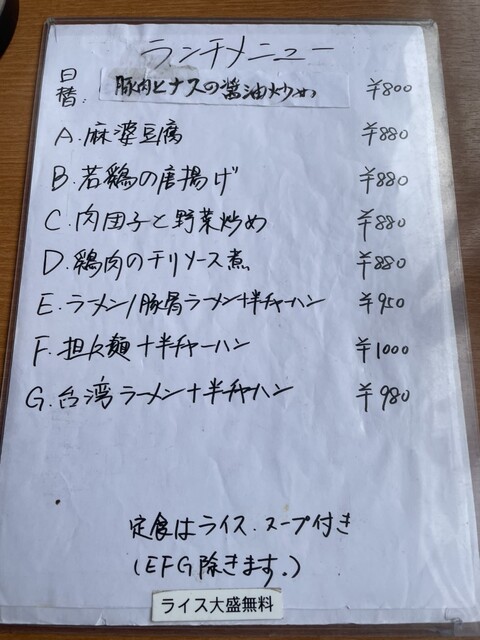 ランチメニュー
日替: 豚肉とナスの醤油炒め ¥800
A.麻婆豆腐 ¥880
B.若鶏の唐揚げ ¥880
C.肉団子と野菜炒め ¥880
D.鶏肉のチリソース煮 ¥880
E.ラーメン/豚骨ラーメン+半チャーハン ¥950
F.担々麺+半チャーハン ¥1000
G.台湾ラーメン+半チャーハン ¥980
定食はライス.スープ付き
(EFG除きます。)
ライス大盛無料